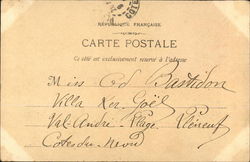 COTE
RÉPUBLIQUE FRANÇAISE
CARTE POSTALE
Ce côté est exclusivement réservé à l'adresse
Miss Ed Bastidon
Villa Ker Goël
Val-André Plage Pléneuf
Cotes du Nord